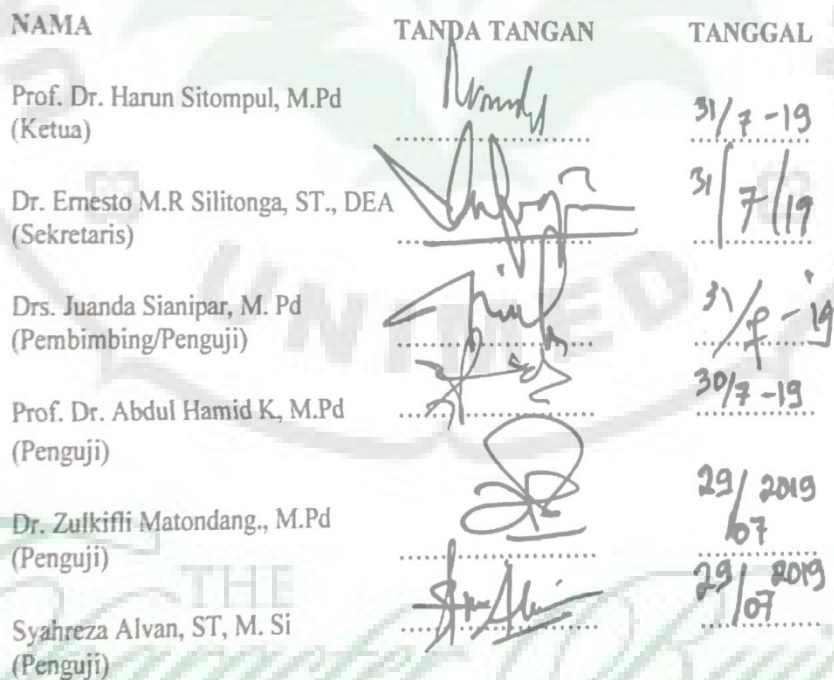 NAMA TANDA TANGAN TANGGAL
Prof. Dr. Harun Sitompul, M.Pd
(Ketua) ........................ 31/7-19
Dr. Ernesto M.R Silitonga, ST., DEA
(Sekretaris) ........................ 31/7/19
Drs. Juanda Sianipar, M. Pd
(Pembimbing/Penguji) ........................ 31/7-19
Prof. Dr. Abdul Hamid K, M.Pd ........................ 30/7-19
(Penguji)
Dr. Zulkifli Matondang., M.Pd
(Penguji) ........................ 29/07 2019
Syahreza Alvan, ST, M. Si ........................ 29/07 2019
(Penguji)
UNIMED
THE
Character